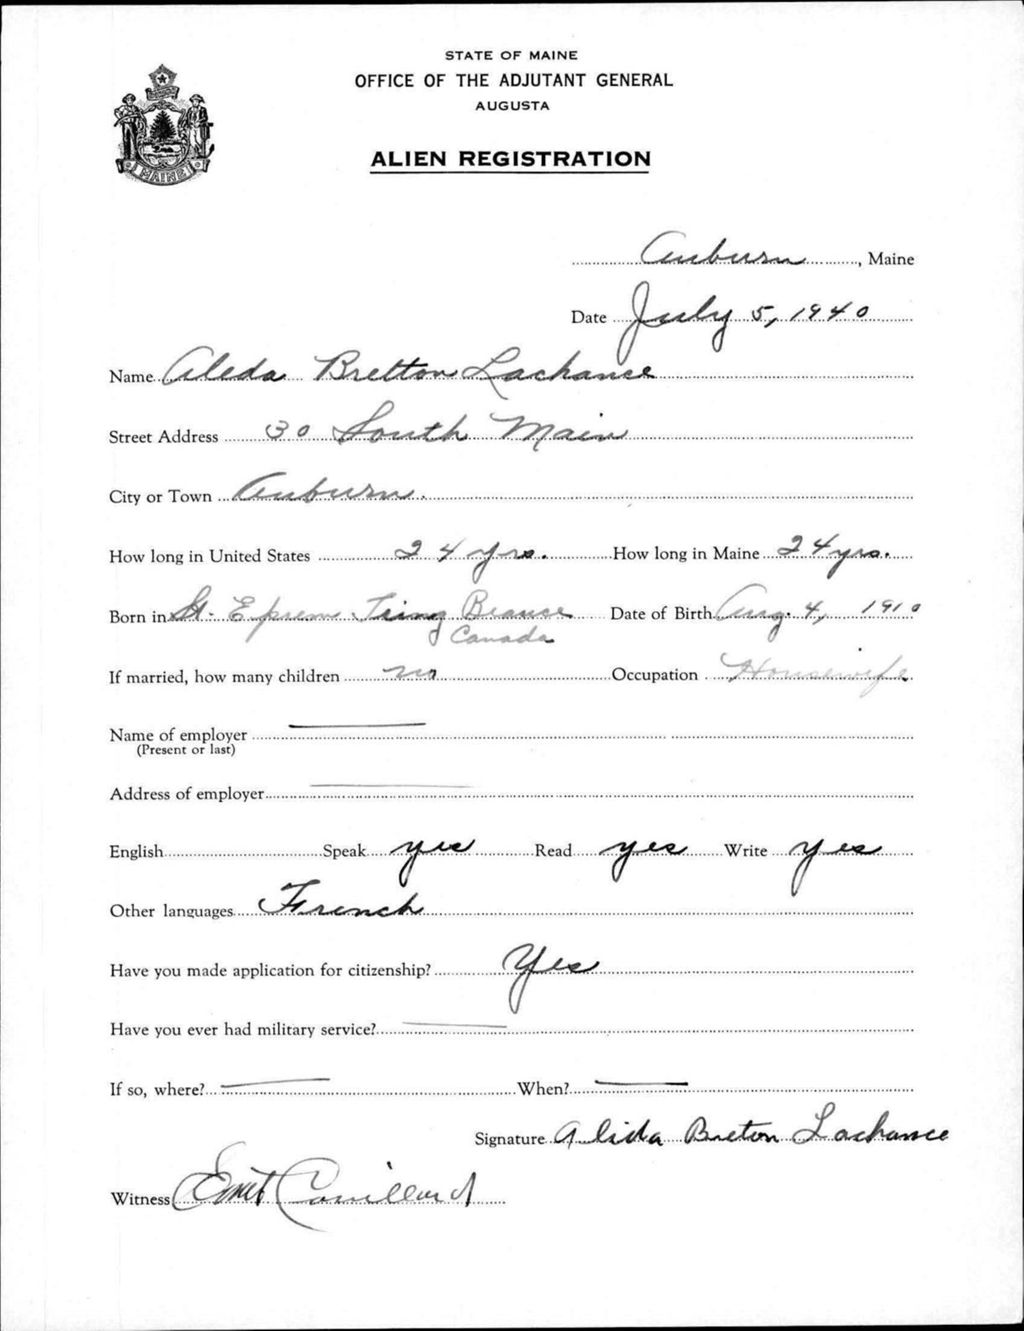 STATE OF MAINE
OFFICE OF THE ADJUTANT GENERAL
AUGUSTA
ALIEN REGISTRATION
MAINE
Auburn, Maine
Date July 5, 1940
Name Aleda Bretton Lachance
Street Address 30 South Main
City or Town Auburn.
How long in United States 24 yrs. How long in Maine 24 yrs.
Born in St. Eprem Tring Beauce Date of Birth Aug. 4, 1910
Canada
If married, how many children no Occupation Housewife
Name of employer
(Present or last)
Address of employer
English Speak yes Read yes Write yes
Other languages French
Have you made application for citizenship? Yes
Have you ever had military service?
If so, where? When?
Signature Alida Breton Lachance
Witness